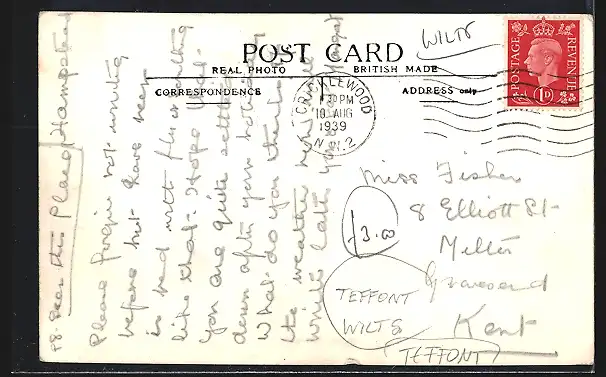 POST CARD
REAL PHOTO BRITISH MADE
CORRESPONDENCE
ADDRESS only
WILTS
POSTAGE REVENUE
1D
CRICKLEWOOD
7:30 PM
10 AUG
1939
N.W.2
Please forgive not writing
before but have been
in bed with flu or
like that. Hope that
you are quite settled
down after your holiday
What do you think of
the weather now
write later
P.S. Seen this Place / Hampstead
Miss Fisher
8 Elliott St
Gravesend
Kent
£3.00
TEFFONT
WILTS
TEFFONT